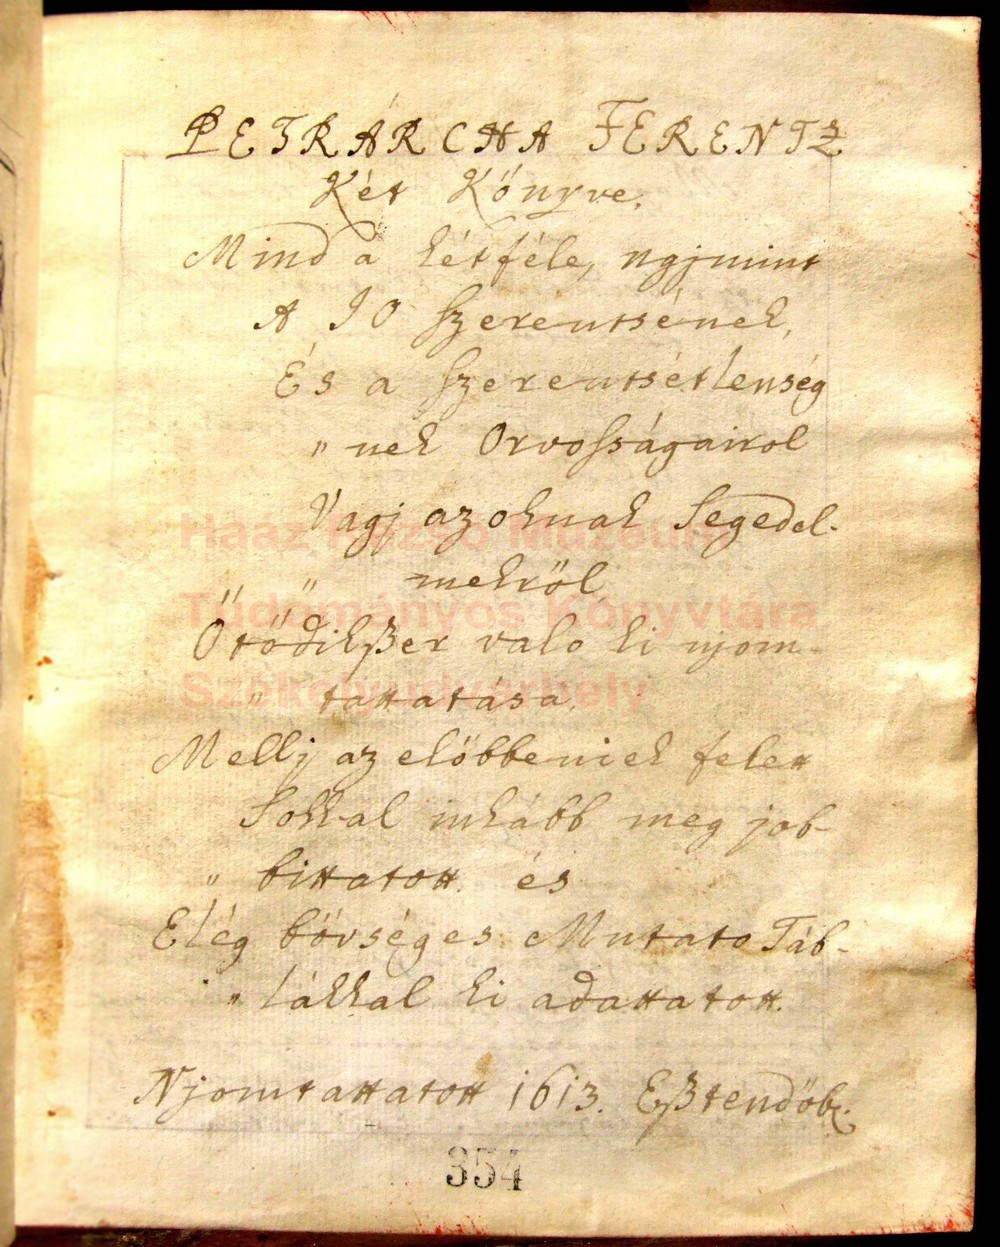 PETRÁRCHA FERENTZ
Két Könyve.
Mind a' kétféle, ugjmint
A JO Szerentsének,
És a Szerentsétlenség
„ nek Orvosságairol
Vagj azoknak Segedel-
mekröl,
Ötödikßer valo ki njom-
„ tattatása.
Mellj az elöbbeniek felett
Sokkal inkább meg job-
„ bittatott. és
Elég bövséges Mutato Táb-
„ lákkal ki adattatott.
Njomtattatott 1613. Eßtendöb.
354
Haáz Rezső Múzeum
Tudományos Könyvtára
Székelyudvarhely